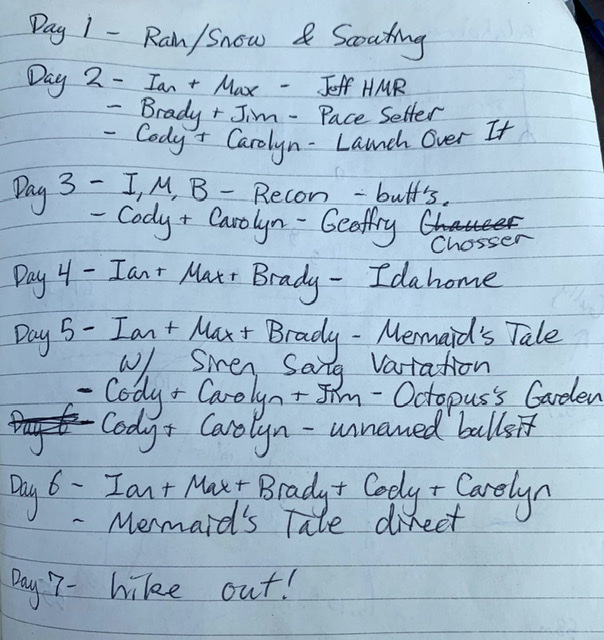 Day 1 - Rain/Snow & Scouting
Day 2 - Ian + Max - Jeff HMR
- Brady + Jim - Pace Setter
- Cody + Carolyn - Launch Over It
Day 3 - I, M, B - Recon - butt's.
- Cody + Carolyn - Geoffry Chaucer
Chosser
Day 4 - Ian + Max + Brady - Idahome
Day 5 - Ian + Max + Brady - Mermaid's Tale
w/ Siren Sang Variation
- Cody + Carolyn + Jim - Octopus's Garden
Day 6 - Cody + Carolyn - unnamed bullsit
Day 6 - Ian + Max + Brady + Cody + Carolyn
- Mermaid's Tale direct
Day 7 - hike out!